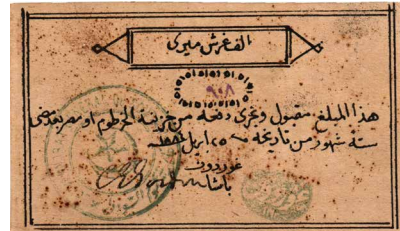 الف غرش ميرى
٩٠٨
هذا المبلغ مقبول وتجرى دفعه من خزينة الخرطوم او مصر بعد مضى
ستة شهور من تاريخه ٢٥ ابريل ١٨٨٤
غوردون
باشا